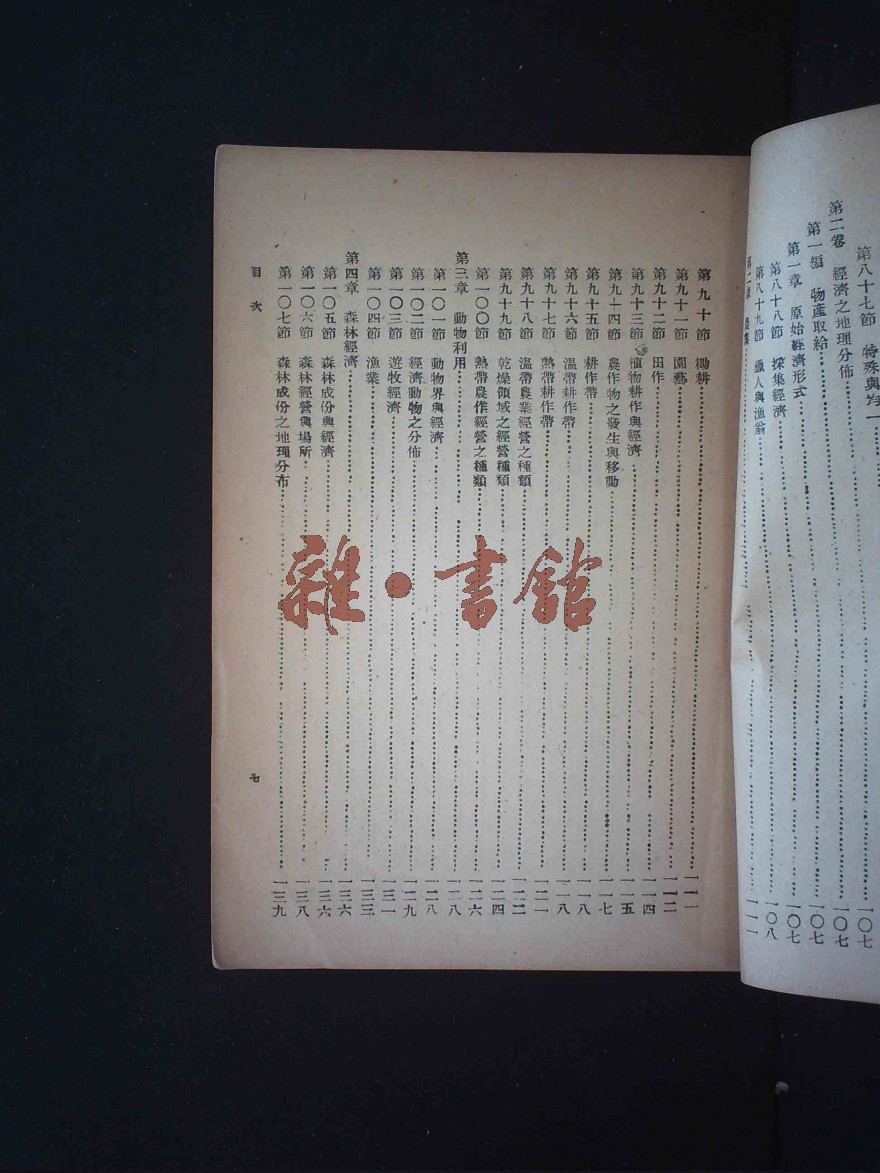 第八十七節 特殊與
第二卷 經濟之地理分佈 一〇七
第一編 物產取給 一〇七
第一章 原始經濟形式 一〇七
第八十八節 採集經濟 一〇七
第八十九節 獵人與漁翁 一〇八
第二章 農業 一一一
第九十節 鋤耕 一一一
第九十一節 園藝 一一二
第九十二節 田作 一一四
第九十三節 植物耕作與經濟 一一五
第九十四節 農作物之發生與移動 一一七
第九十五節 耕作帶 一一八
第九十六節 溫帶耕作帶 一一八
第九十七節 熱帶耕作帶 一二一
第九十八節 溫帶農業經營之種類 一二二
第九十九節 乾燥領域之經營種類 一二四
第一〇〇節 熱帶農作經營之種類 一二六
第三章 動物利用 一二八
第一〇一節 動物界與經濟 一二八
第一〇二節 經濟動物之分佈 一二九
第一〇三節 遊牧經濟 一三一
第一〇四節 漁業 一三三
第四章 森林經濟 一三六
第一〇五節 森林成份與經濟 一三六
第一〇六節 森林經營與場所 一三八
第一〇七節 森林成份之地理分布 一三九
目次 七
雜·書館